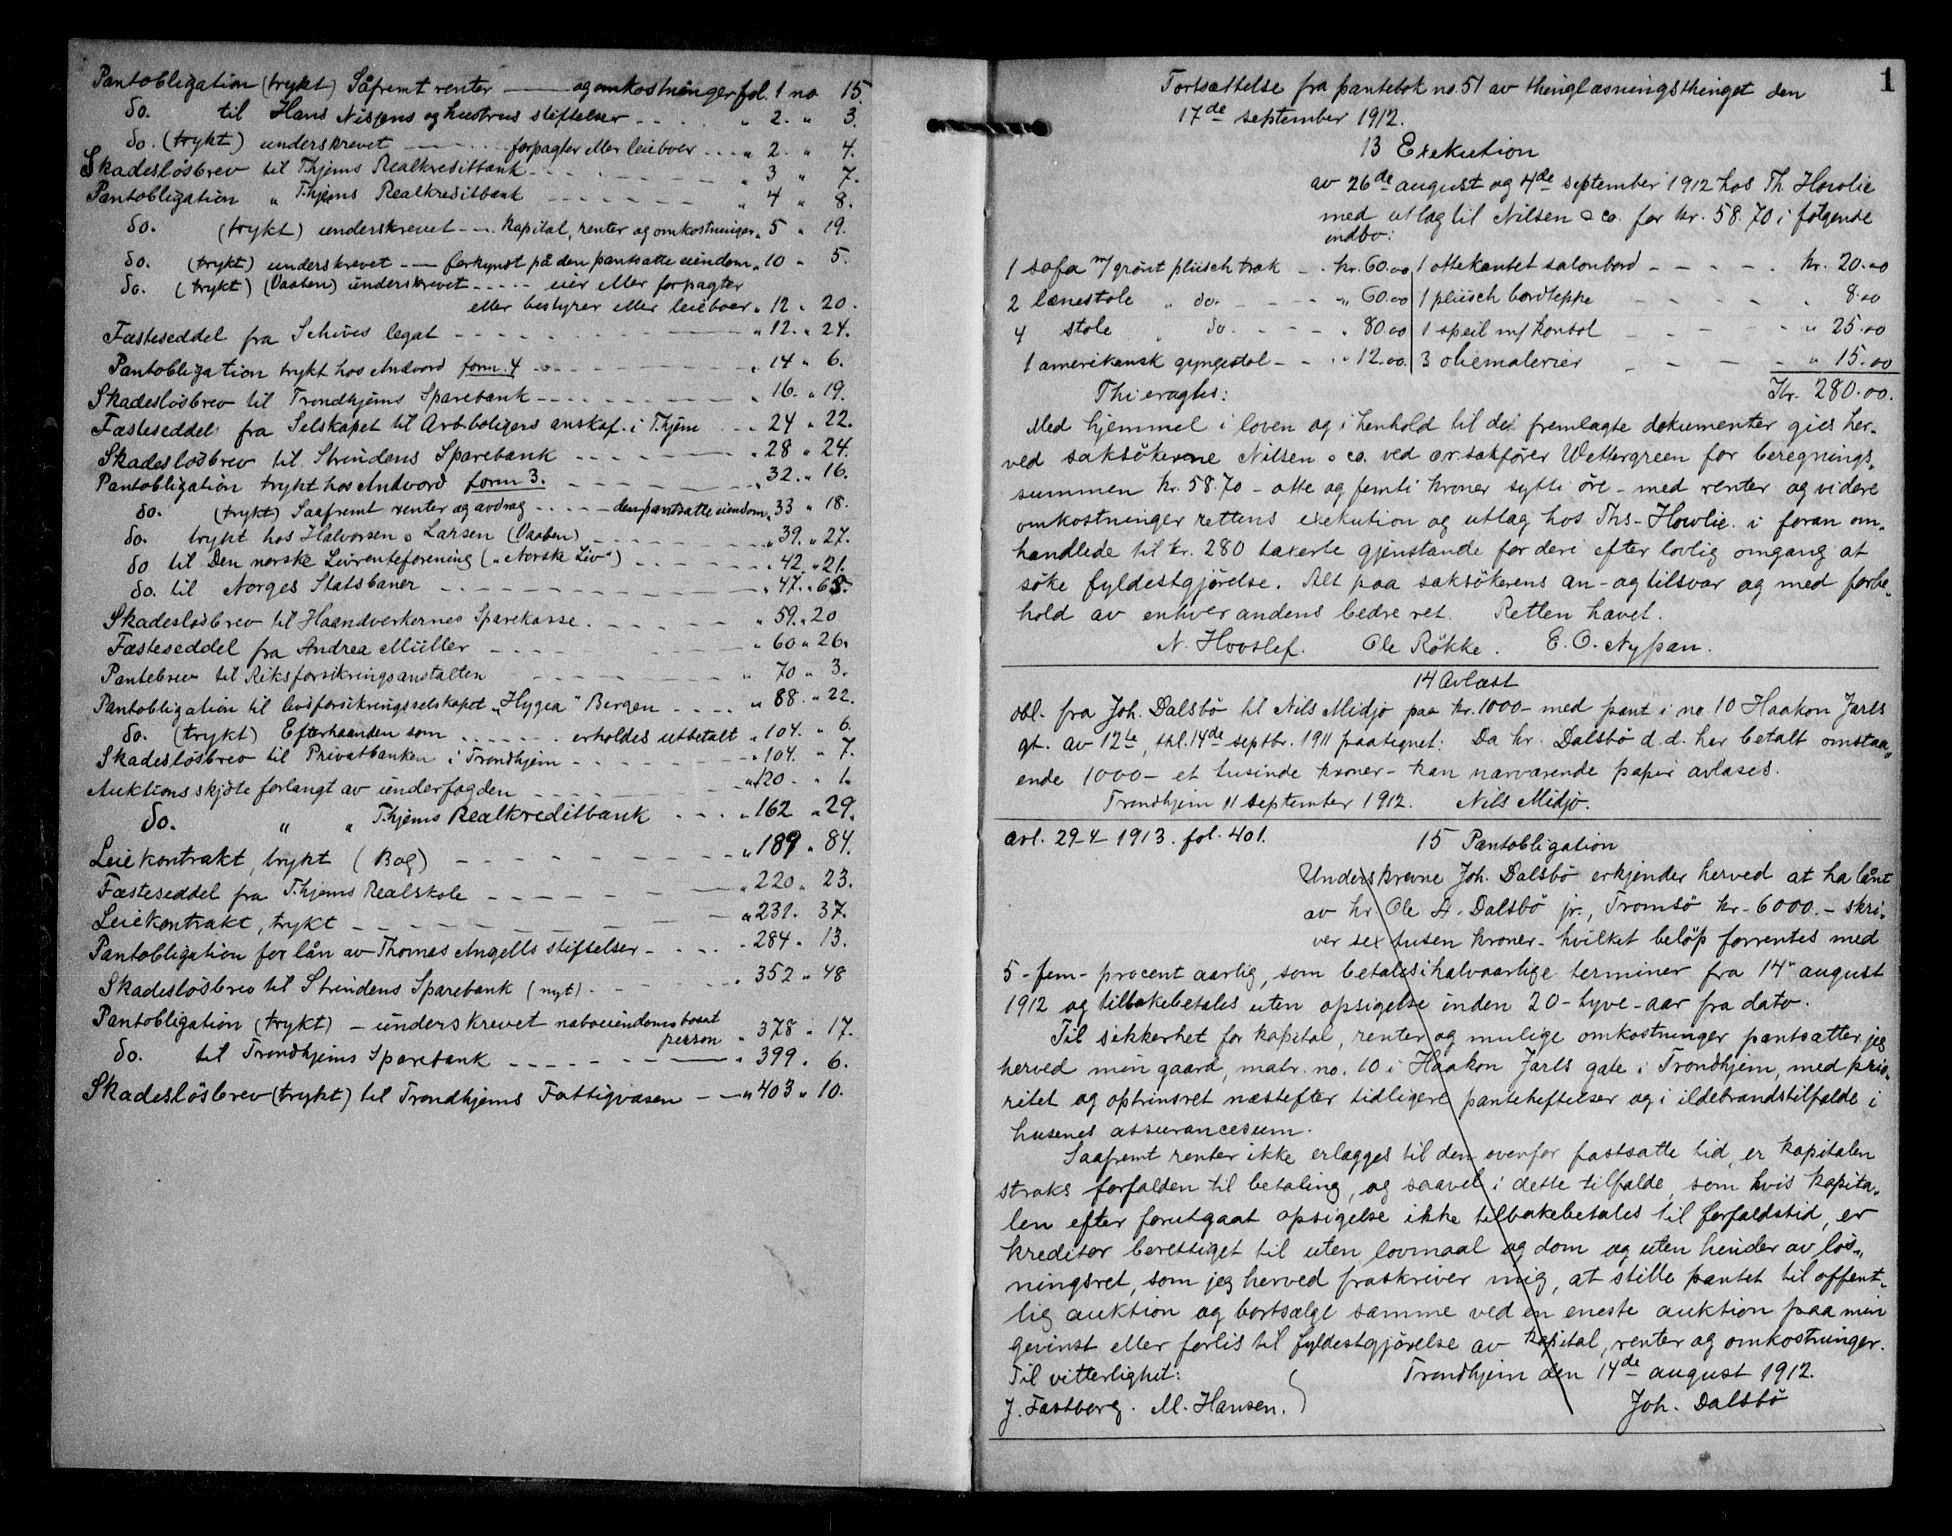 Pantobligation (trykt) Såfremt renter —— og omkostninger fol. 1 no 15.
do. til Hans Nissens og hustrus stiftelser - - - - " 2. " 3.
do. (trykt) underskrevet - - - - - forpagter eller leieboer - - - " 2. " 4.
Skadesløsbrev til Thjems Realkreditbank - - - - - - - " 3 " 7.
Pantobligation " Thjems Realkreditbank - - - - - - - " 4 " 8.
do. (trykt) underskrevet - - - kapital, renter og omkostninger " 5 " 19.
do. (trykt) underskrevet - — forkynt på den pantsatte eiendom " 10 " 5.
do. (trykt) (Vaaben) underskrevet - - - - - eier eller forpagter
eller bestyrer eller leieboer " 12 " 20.
Fæsteseddel fra Schives legat - - - - - - - - - " 12. " 24.
Pantobligation trykt hos Andvord form. 4 - - - - - - - " 14 " 6.
Skadesløsbrev til Trondhjems Sparebank - - - - - - - " 16. " 19.
Fæsteseddel fra Selskapet til Arb.boligers anskaf. i T.hjem - - - 24 " 22.
Skadesløsbrev til Strindens Sparebank - - - - - - - " 28 " 24.
Pantobligation trykt hos Andvord form 3. - - - - - - - " 32. " 16.
do. (trykt) Saafremt renter og avdrag - - - - - den pantsatte eiendom " 33 " 18.
do. trykt hos Halvorsen & Larsen (Vaaben) - - - - - - - " 39. " 27.
do til Den norske Livrenteforening („Norske Liv") - - - - - " 42. " 21.
do. til Norges Statsbaner - - - - - - - - - " 47. " 65.
Skadesløsbrev til Haandverkernes Sparekasse. - - - - - - " 59. " 20
Fæsteseddel fra Andrea Müller - - - - - - - " 60 " 26.
Pantebrev til Riksforsikringsanstalten - - - - - - - 70 " 3.
Pantobligation til livsforsikringsselskapet „Hygea" Bergen - - - - " 88. " 22.
do. (trykt) Efterhaanden som - - - - - - erholdes utbetalt " 104. " 6.
Skadesløsbrev til Privatbanken i Trondhjem - - - - - - - " 104. " 7.
Auktionsskjøte forlangt av underfogden - - - - - - - " 120. " 1.
do. " " Thjems Realkreditbank - - - " 162 " 29.
Leiekontrakt, trykt ( ) - - - - - - - - - " 189 " 84.
Fæsteseddel fra T.hjems Realskole - - - - - - - " 220 " 23.
Leiekontrakt, trykt - - - - - - - - - " 231. 37.
Pantobligation for lån av Thomas Angells stiftelser - - - - - 284 " 13.
Skadesløsbrev til Strindens Sparebank (nyt) - - - - - - " 352 " 48
Pantobligation (trykt) - underskrevet naboeiendomsbesat
person " 378 " 17.
do. til Trondhjems Sparebank - - - - - - - " 399 " 6.
Skadesløsbrev (trykt) til Trondhjems Fattigvæsen - - " 403 " 10.
1
Fortsættelse fra pantebok no. 51 av thinglæsningsthinget den
17de september 1912.
13 Exekution
av 26de august og 4de september 1912 hos Th. Howlie
med utlæg til Nilsen & co. for kr. 58.70 i følgende
indbo:
1 sofa m/ grønt plüsch træk - . kr. 60.00 1 ottekantet salonbord - - - - - kr. 20.00
2 lænestole " do. - - - - " 60.00 1 plüsch bordteppe - - - - - " 8.00
4 stole " do. - - - - " 80.00 1 speil m/ konsol - - - - - " 25.00
1 amerikansk gyngestol - - " 12.00. 3 oliemalerier - - - - " 15.00
Kr. 280.00.
Thi eragtes:
Med hjemmel i loven og i henhold til de fremlagte dokumenter gies her-
ved saksökerne Nilsen & co. ved or.sakfører Wettergreen for beregnings-
summen kr. 58.70 - otte og femti kroner sytti øre - med renter og videre
omkostninger rettens exekution og utlæg hos Ths. Howlie i foran om-
handlede til kr. 280 taxerte gjenstande for deri efter lovlig omgang at
söke fyldestgjørelse. Alt paa saksökerens an- og tilsvar og med forbe-
hold av enhver andens bedre ret. Retten hævet.
N. Hovslef. Ole Røkke. E. O. Nypan.
14 Avlæst
obl. fra Joh. Dalsbö til Nils Midjo paa kr. 1000 - med pant i no. 10 Haakon Jarls
gt. av 12te, thl. 14de septbr. 1911 paategnet: Da hr. Dalsbö d.d. har betalt omstaa-
ende 1000 - et tusinde kroner - kan nærværende papir avlæses.
Trondhjem 11 september 1912. Nils Midjo.
avl. 29-4-1913. fol. 401.
15 Pantobligation
Underskrevne Joh. Dalsbö erkjender herved at ha lånt
av hr. Ole A. Dalsbö jr., Tromsö kr. 6000. - skri-
ver sex tusen kroner - hvilket beløp forrentes med
5 - fem - procent aarlig, som betales i halvaarlige terminer fra 14" august
1912 og tilbakebetales uten opsigelse inden 20 - tyve - aar fra dato.
Til sikkerhet for kapital, renter og mulige omkostninger pantsætter jeg
herved min gaard, matr. no. 10 i Haakon Jarls gate i Trondhjem, med prio-
ritet og optrinsret næstefter tidligere panteheftelser og i ildebrandstilfælde i
husenes assurancesum.
Saafremt renter ikke erlægges til den ovenfor fastsatte tid, er kapitalen
straks forfalden til betaling, og saavel i dette tilfælde, som hvis kapita-
len efter forutgaat opsigelse ikke tilbakebetales til forfaldstid, er
kreditor berettiget til uten lovmaal og dom og uten hinder av løs-
ningsret, som jeg herved fraskriver mig, at stille pantet til offent-
lig auktion og bortsælge samme ved en eneste auktion paa min
gevinst eller forlis til fyldestgjørelse av kapital, renter og omkostninger.
Til vitterlighet: Trondhjem den 14de august 1912.
J. Fastborg. M. Hansen. Joh. Dalsbö